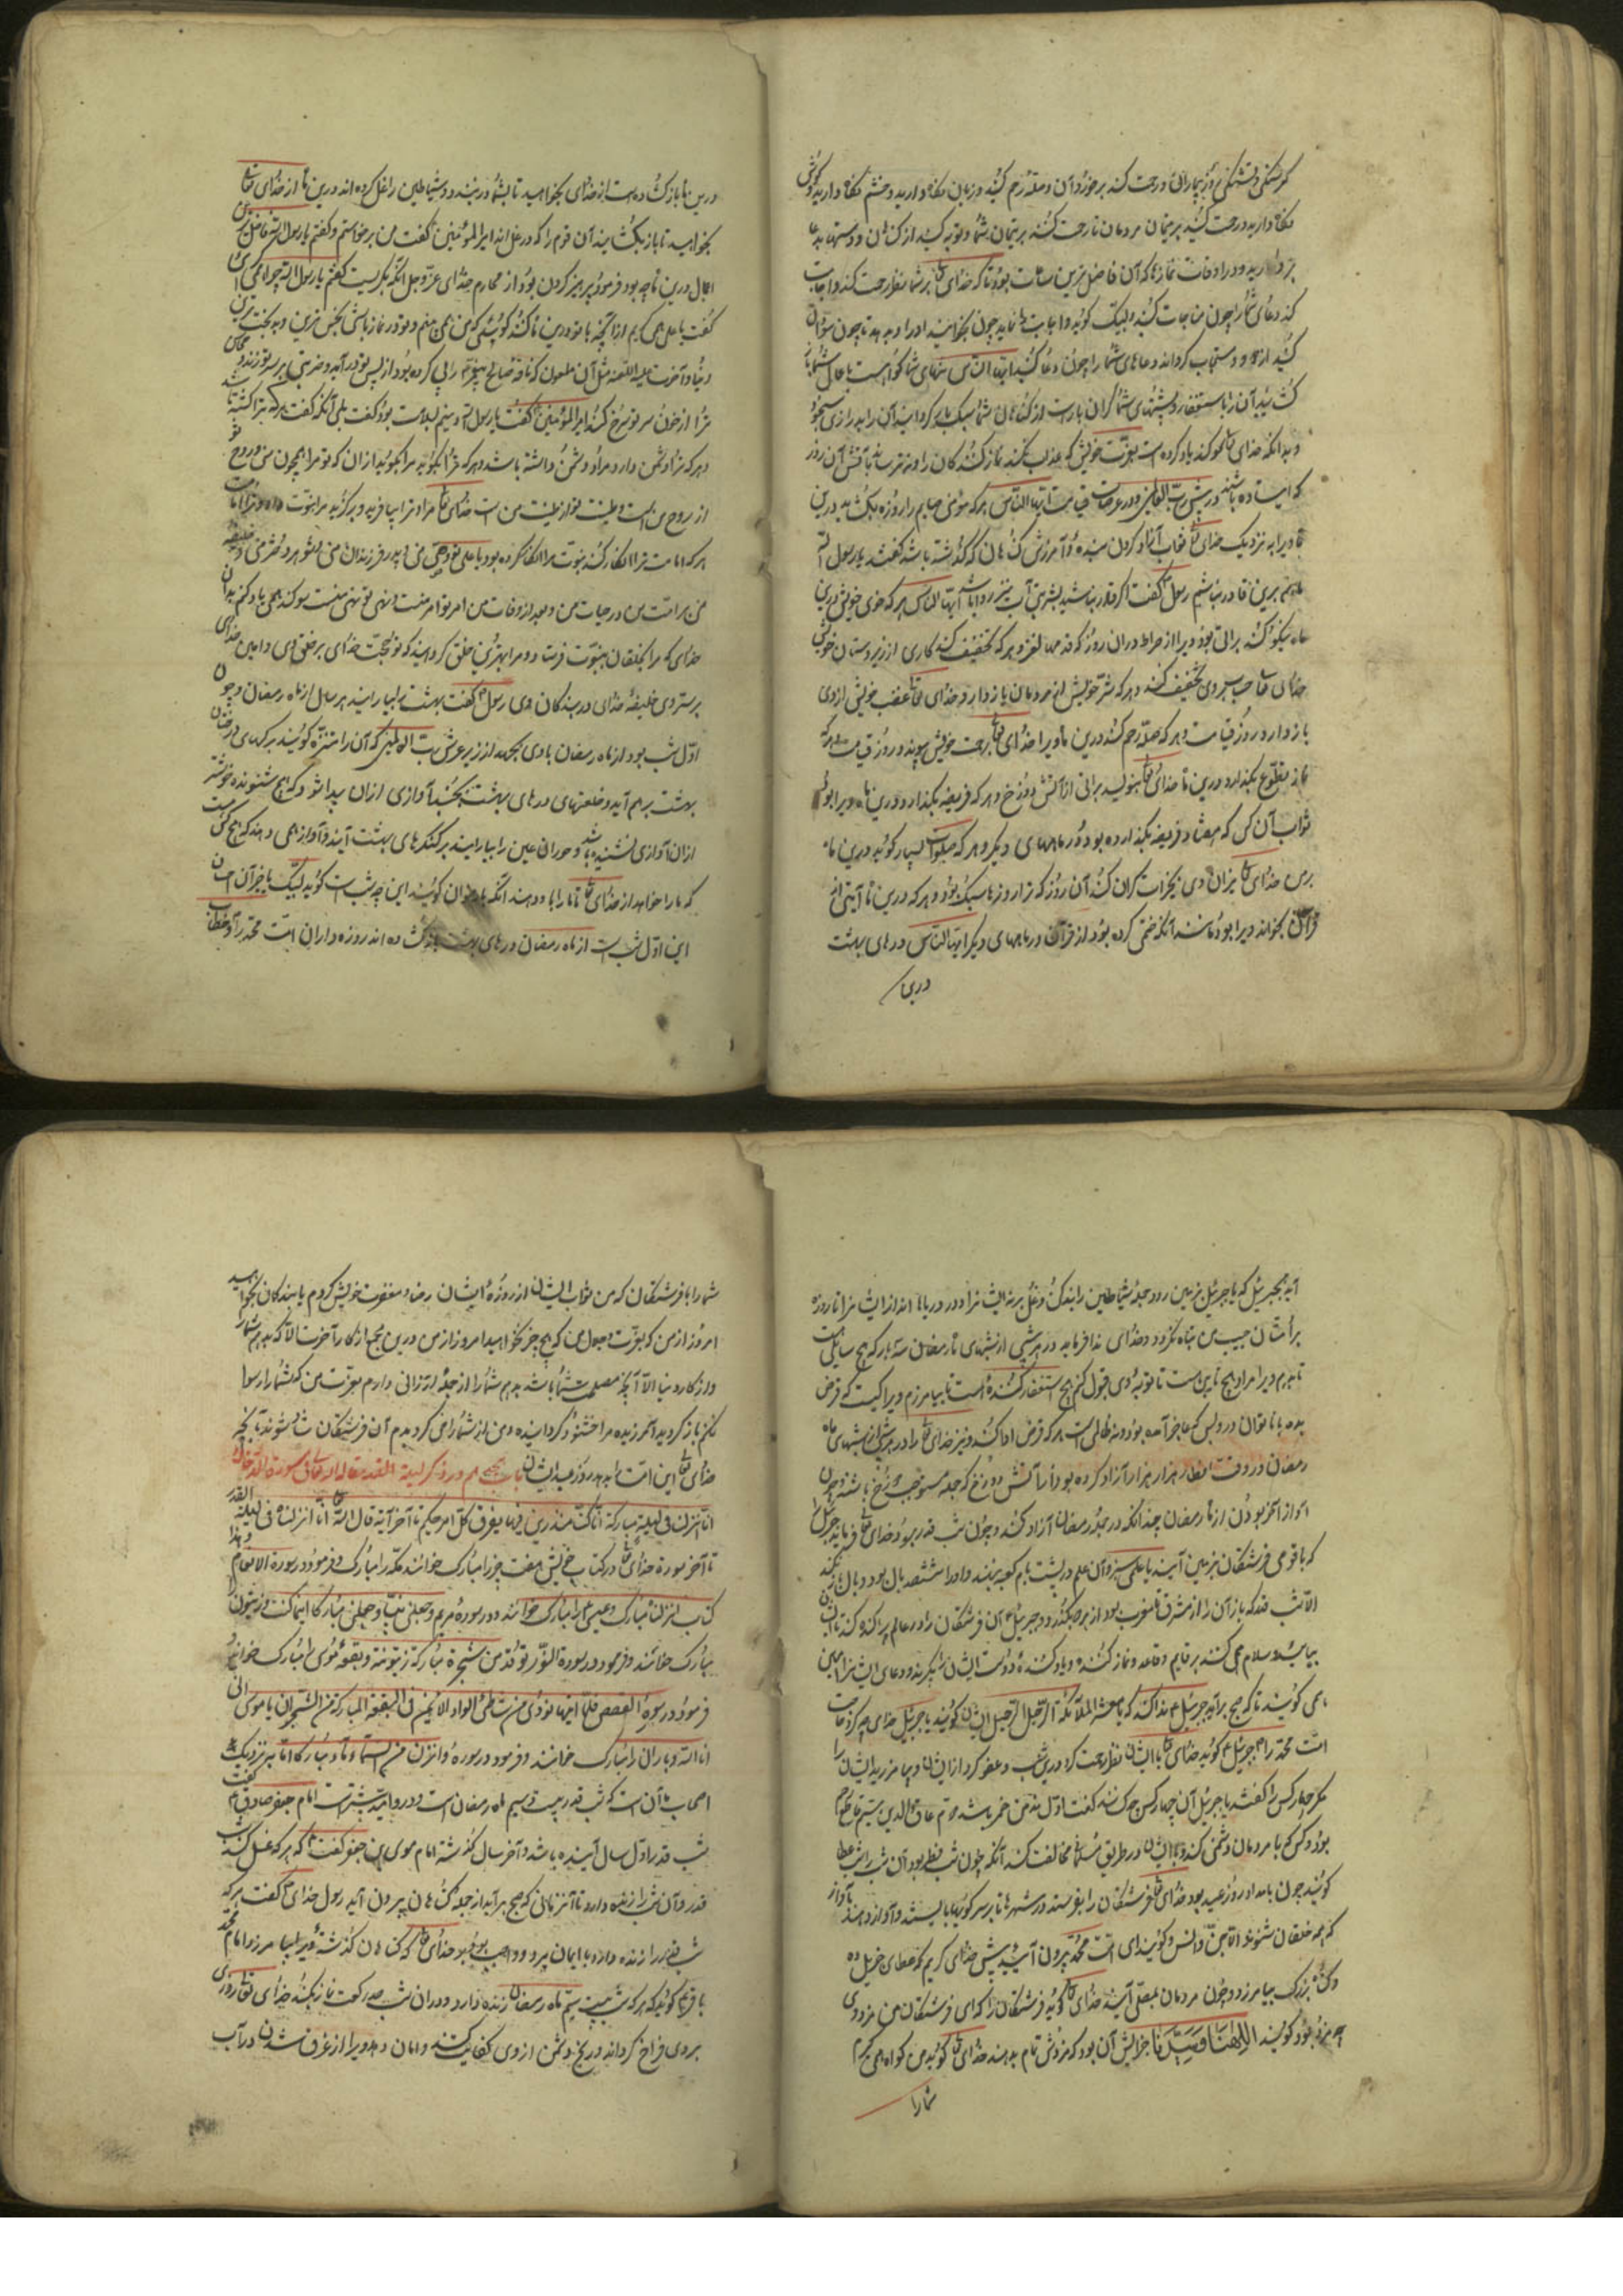 کرسنکی و تشنکی و بر بیماران رحمت کنید برخوردان و صله رحم کنید و زبان نکاه دارید و چشم نکاه دارید و کوش
نکاه دارید و رحمت کنید بر یتیمان مردمان تا رحمت کنند بر یتیمان شما و توبه کنید از کناهان و دستها بدعا
بردارید در اوقات نمازها که آن فاضل ترین ساعات بود تا که خدای تعالی بر شما نظر رحمت کند و اجابت
کند دعای شما را چون مناجات کنید و لبیک کوید و اجابت نماید چون بخوانید او را و بدهد تا چون سؤال
کنید ازو و مستجاب کرداند دعاهای شما را چون دعا کنید ایها الناس تنهای شما کرو است باعمال شما باز
کشایید آن را باستغفار و پشتهای شما کران بارست از کناهان شما سبک بار کردانید آن را بدرازی سجود
و بدانکه خدای تعالی سوکند یاد کرده است بعزت خویش که عذاب نکند نماز کنندکان را و نترساند بآتش آن روز
که ایستاده باشند در پیش رب العالمین در عرصات قیامت ایها الناس هر که مؤمنی صایم را روزه بکشاید درین
ماه ویرا به نزدیک خدای تعالی ثواب آزاد کردن بنده و آمرزش کناهان که کذشته باشد کفتند یا رسول الله
ما همه برین قادر نباشیم رسول کفت اکر قادر نباشید بشربتی آب نیز روا باشد ایها الناس هر که خوی خویش درین
ماه نیکو کند براتی بود ویرا از صراط در آن روز که قدمها لغزد و هر که تخفیف کند کاری از زیردستان خویش
خدای تعالی حساب بر وی تخفیف کند و هر که شر خویش از مردمان باز دارد خدای تعالی غضب خویش از وی
باز دارد روز قیامت و هر که صله رحم کند درین ماه ویرا خدای تعالی برحمت خویش پیوندد روز قیامت و هر که
نماز تطوع بکذارد درین ماه خدای تعالی بنویسد براتی از آتش دوزخ و هر که فریضه بکذارد درین ماه ویرا بود
ثواب آن کس که هفتاد فریضه بکذارده بود در ماههای دیکر و هر که صلوات بسیار کوید درین ماه
برمن خدای تعالی میزان وی بخیرات کران کند آن روز که ترازوها سبک بود و هر که درین ماه آیتی از
قرآن بخواند ویرا بود مانند آنکه ختم کرده بود از قرآن در ماههای دیکر ایها الناس درهای بهشت
درین
درین ماه باز کشاده است از خدای بخواهید تا بشما در نبندد و شیاطین را غل کرده اند درین ماه از خدای تعالی
بخواهید تا باز نکشاید آن قوم را که در غل اند امیر المؤمنین کفت من برخواستم و کفتم یا رسول الله فاضل ترین
اعمال درین ماه چه بود فرمود پرهیز کردن بود از محارم خدای عز و جل آنکه بکریست کفتم یا رسول الله چرا می کریی
کفت یا علی می کریم از آنچه با تو درین ماه کنند کویی که من می بینم و تو در نماز باشی
دنیا و آخرت علیه اللعنه مثل آن ملعون که ناقه صالح پیغمبر را پی کرده بود از پس تو در آید و ضربتی بر سر تو زند و محاسن
ترا از خون سر تو سرخ کند امیر المؤمنین کفت یا رسول الله دینم بسلامت بود کفت بلی آنکه کفت هر که ترا کشته باشد مرا کشته
و هر که ترا دشمن دارد مرا دشمن داشته باشد و هر که ترا بد کوید مرا بد کوید از آن که تو مرا همچون منی روح تو
از روح من است و طینت تو از طینت من است خدای تعالی مرا و ترا بیافرید و برکزید مرا نبوت داد و ترا امامت
هر که امامت ترا انکار کند نبوت مرا انکار کرده بود یا علی تو وصی منی و پدر فرزندان منی و شوهر دختر منی و خلیفه
من بر امت من در حیات من و بعد از وفات من امر تو امر منست و نهی تو نهی منست سوکند می یاد کنم بدان
خدای که مرا بخلقان بنبوت فرستاد و مرا بهترین خلق کردانید که تو حجت خدای بر خلق وی و امین خدای
بر سر وی خلیفه خدای در بندکان وی رسول کفت بهشت بیارایند هر سال از ماه رمضان و چون
اول شب بود از ماه رمضان بادی بجهد از زیر عرش رب العالمین که آن را مثیره کویند برکهای درختان
بهشت برهم آید و حلقهای درهای بهشت بجنبد آوازی از آن پیدا شود که هیچ شنونده خوشتر
از آن آوازی نشنیده باشد و حوران عین را بیارایند بر کنکرهای بهشت آیند و آواز می دهند که هیچ کس هست
که ما را خواهد از خدای تعالی تا ما را با او دهند آنکه با رضوان کویند این چه شب است کوید لبیک یا خیرات حسان
این اول شب است از ماه رمضان درهای بهشت باز کشاده اند روزه داران امت محمد را و خطاب
آید بجبرئیل که یا جبرئیل بزمین رو و جمله شیاطین را بند کن و غل بر نه ایشان را و در دریاها انداز ایشان را تا روزه
بر امتان حبیب من تباه نکردد و خدای ندا فرماید در هر شبی از شبهای ماه رمضان سه بار که هیچ سایلی هست
تا بدهم ویرا مراد و هیچ تایبی هست تا توبه وی قبول کنم و هیچ استغفار کننده است تا بیامرزم ویرا کیست که قرض
بدهد با توانی درویش که عاجز آمده بود و نه ظالمی است هر که قرض ادا کند و نیز خدای تعالی را در هر شبی از شبهای ماه
رمضان در وقت افطار هزار هزار آزاد کرده بود از آتش دوزخ که جمله مستوجب دوزخ باشند و چون
آواز آخر بودن از ماه رمضان چندانکه در جمله رمضان آزاد کند و چون شب قدر بود خدای تعالی فرماید جبرئیل را
که با قومی فرشتکان بزمین آیند با علمی سبز و آن علم در پشت بام کعبه بزنند و او را ششصد بال بود دو بال باز نکند
الا شب قدر که باز آن را از مشرق تا مغرب بود از هر دو بکذرد و جبرئیل آن فرشتکان را در عالم پراکنده کند تا ایشان
بیایند و سلام می کنند بر قایم و قاعد و نماز کننده و یاد کننده و دست ایشان می کیرند و دعای ایشان را آمین
می کویند تا که صبح برآید جبرئیل ندا کند که یا معشر الملائکه الرحیل الرحیل ایشان کویند یا جبرئیل خدای چه کرد حاجات
امت محمد را جبرئیل کوید خدای تعالی با ایشان نظر رحمت کرد درین شب و عفو کرد از ایشان و بیامرزید ایشان را
مکر چهار کس را کفتند یا جبرئیل آن چهار کس کدامند کفت اول مدمن خمر باشد دوم عاق والدین سیم قاطع رحم
بود و کسی که با مردمان دشمنی کند و با ایشان در طریق مسلمانی مخالفت کند آنکه چون شب فطر بود آن شب را شب عطا
کویند چون بامداد روز عید بود خدای تعالی فرشتکان را بفرستد در شهرها تا بر سر کویها بایستند و آواز دهند بآوازی
که همه خلقان شنوند الا جن و انس و کویند ای امت محمد بیرون آیید پیش خدای کریم که عطای جزیل دهد
و کناه بزرک بیامرزد و چون مردمان بمصلی آیند خدای تعالی کوید فرشتکان را که ای فرشتکان من مزدوری
چه مزد بود کویند الهنا و سیدنا جزایش آن بود که مزدش تمام بدهند خدای تعالی کوید من کواه می کیرم
شما را
شما را یا فرشتکان که من ثواب ایشان از روزه ایشان رضا و مغفرت خویش کردم یا بندکان بخواهید
امروز از من که بعزت و جلال من که هیچ چیز نخواهید امروز از من درین جمع از کار آخرت الا که بدهم شما را
و از کار دنیا الا آنچه مصلحت شما باشد بدهم شما را از جمله ارزانی دارم بعزت من که شما را رسوا
نکنم باز کردید آمرزیده مرا خشنود کردانیده و من از شما راضی کردیدم آن فرشتکان شاد شوند بآنچه
خدای تعالی این امت را بدهد روز عید ایشان باب پنجم در ذکر لیلة القدر قال الله تعالی فی سورة الدخان
انا انزلناه فی لیلة مبارکة انا کنا منذرین فیها یفرق کل امر حکیم تا آخر آیة قال الله تعالی انا انزلناه فی لیلة القدر
تا آخر سورة خدای تعالی در کتاب خویش هفت چیز را مبارک خوانند مکه را مبارک و فرمود در سورة الانعام و هذا
کتاب انزلناه مبارک و عیسی را مبارک خوانند و در سوره مریم و جعلنی نبیا و جعلنی مبارکا اینما کنت و زیتون را
مبارک خوانند و فرمود در سورة النور توقد من شجرة مبارکة زیتونة و بقعه موسی را مبارک خواند
فرمود در سورة القصص فلما اتیها نودی من شاطئ الواد الایمن فی البقعة المبارکة من الشجرة ان یا موسی انی
انا الله و باران را مبارک خوانند و فرمود در سوره وانزلنا من السماء ماء مبارکا اما بنزدیک
اصحاب ما آن است که شب قدر بیست و سیم ماه رمضان است و در روایت بیشتر است امام جعفر صادق کفت
شب قدر اول سال آینده باشد و آخر سال کذشته امام موسی بن جعفر کفت که هر که غسل کند شب
قدر و آن شب را زنده دارد تا آن زمانی که صبح برآید از جمله کناهان بیرون آید رسول خدای کفت هر که
شب قدر را زنده دارد با ایمان خدای تعالی که کناهان کذشته ویرا بیامرزد امام محمد
باقر کوید که هر که شب بیست سیم ماه رمضان زنده دارد و در آن شب صد رکعت نماز بکند خدای تعالی روزی
بر وی فراخ کرداند و رنج دشمن از وی کفایت کند و امان دهد ویرا از غرق شدن در آب